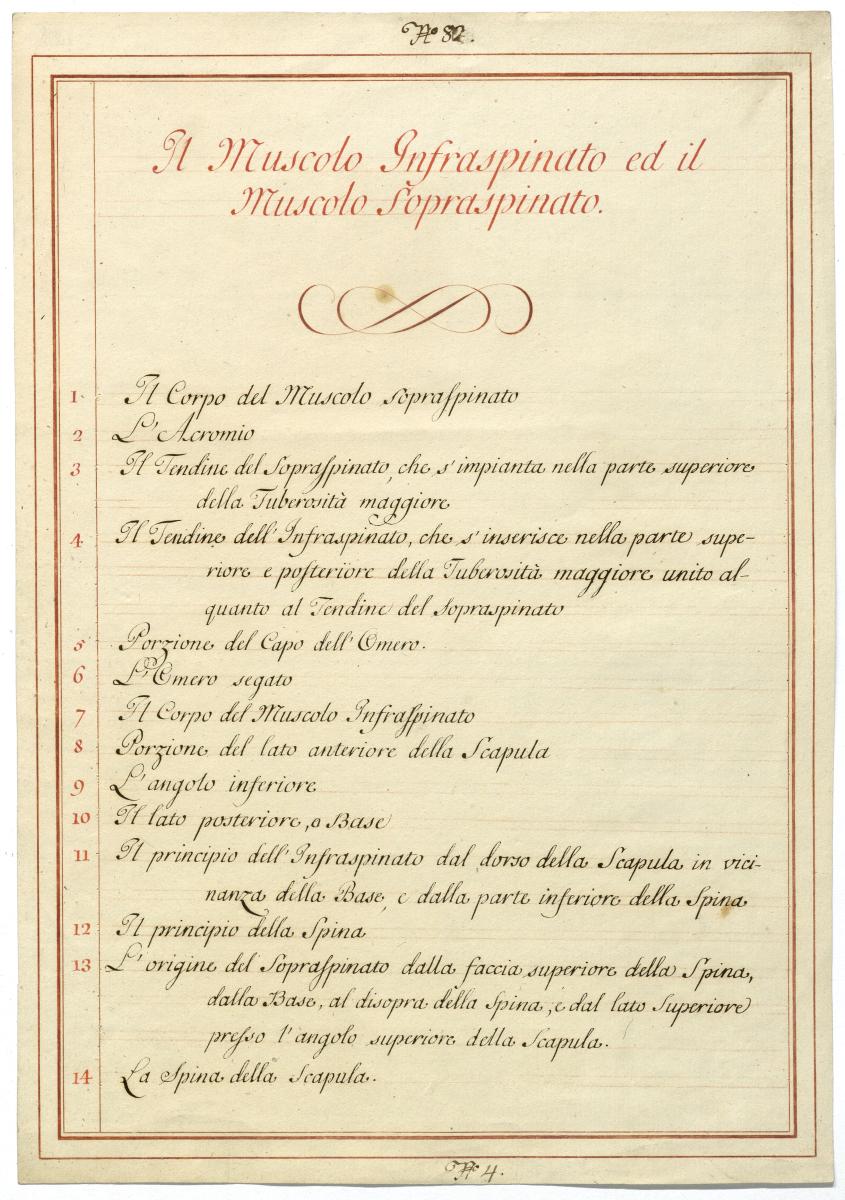 No 82.
Il Muscolo Infraspinato ed il
Muscolo Sopraspinato.
1 Il Corpo del Muscolo sopraſpinato
2 L'Acromio
3 Il Tendine del Sopraſpinato, che s'impianta nella parte superiore
della Tuberosità maggiore
4 Il Tendine dell'Infraspinato, che s'inserisce nella parte supe-
riore e poſteriore della Tuberosità maggiore unito al-
quanto al Tendine del sopraspinato
5 Porzione del Capo dell'Omero.
6 L'Omero segato
7 Il Corpo del Muscolo Infraſpinato
8 Porzione del lato anteriore della Scapula
9 L'angolo inferiore
10 Il lato posteriore, o Base
11 Il principio dell'Infraspinato dal dorso della Scapula in vici-
nanza della Base, e dalla parte inferiore della Spina
12 Il principio della Spina
13 L'origine del Sopraſpinato dalla faccia superiore della Spina,
dalla Base, al disopra della Spina, e dal lato Superiore
preſso l'angolo superiore della Scapula.
14 La Spina della Scapula.
No 4.